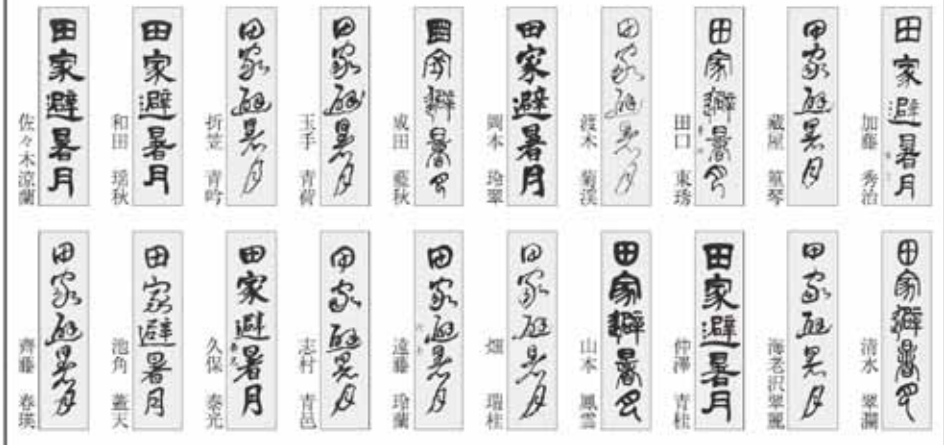 田家避暑月
加藤 秀治
田家避暑月
蔵屋 篁琴
田家避暑月
田口 東琇
田家避暑月
渡木 菊渓
田家避暑月
岡本 玲翠
田家避暑月
成田 藍秋
田家避暑月
玉手 青荷
田家避暑月
折笠 青吟
田家避暑月
和田 瑶秋
田家避暑月
佐々木涼蘭
田家避暑月
清水 翠瀾
田家避暑月
海老沢翠麗
田家避暑月
仲澤 青桂
田家避暑月
山本 鳳雲
田家避暑月
畑 瑞桂
田家避暑月
遠藤 玲蘭
田家避暑月
志村 青邑
田家避暑月
久保 泰光
田家避暑月
池角 蓋天
田家避暑月
齊藤 春瑛